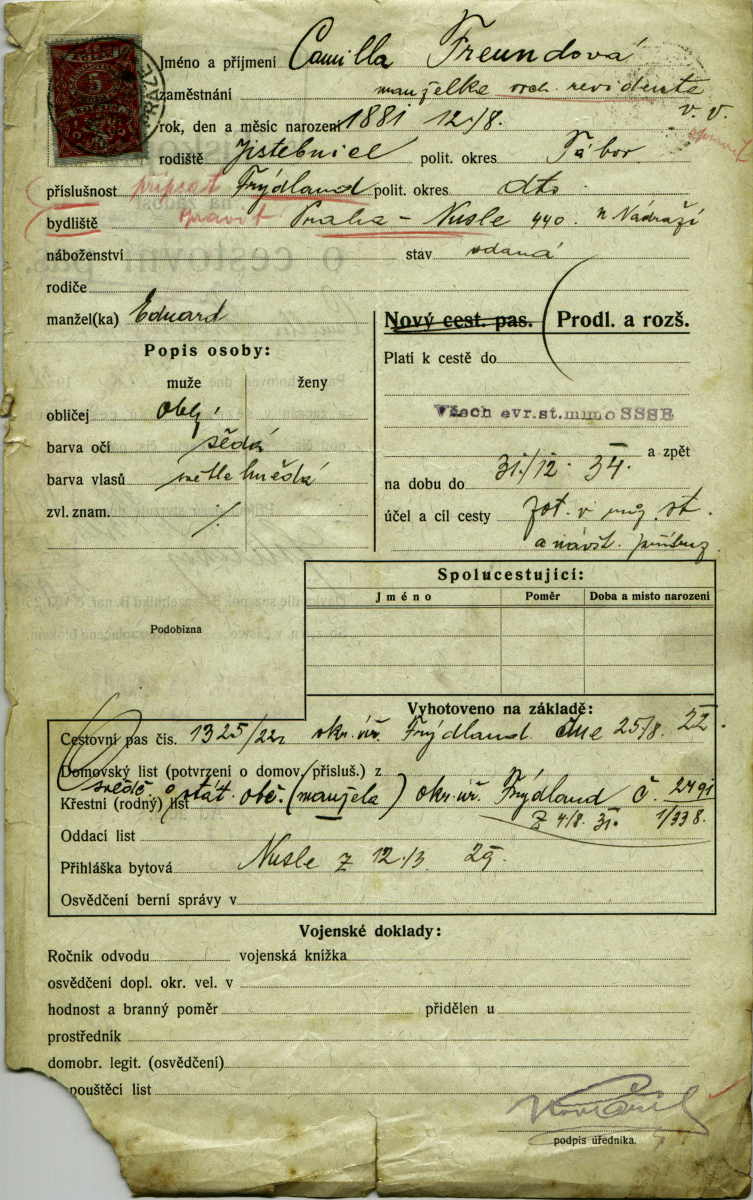 Jméno a příjmení Camilla Freundová
zaměstnání manželka vrch. revidenta
v. v.
rok, den a měsíc narození 1881 12./8.
rodiště Jistebnice polit. okres Tábor
příslušnost připsat Frýdland polit. okres dto
bydliště Praha - Nusle 440 n Nádraží
náboženství stav vdaná
rodiče
manžel(ka) Eduard
Nový cest. pas. Prodl. a rozš.
Popis osoby:
muže ženy
obličej obl.
barva očí šedá
barva vlasů světle hnědá
zvl. znam. /.
Platí k cestě do
Všech evr. st. mimo SSSR
a zpět
na dobu do 31./12. 34.
účel a cíl cesty st.
a návšt. příbuz.
Spolucestující:
Jméno Poměr Doba a místo narození
Podobizna
Vyhotoveno na základě:
Cestovní pas čís. 1325/22 okr. úř. Frýdland dne 25/8. 22.
Domovský list (potvrzení o domov. přísluš.) z
svědč. o stát. obč. (manžela) okr. úř. Frýdland č. 2491
Křestní (rodný) list
Z 4/8. 31. 1/338.
Oddací list
Přihláška bytová Nusle z 12./3. 29.
Osvědčení berní správy v
Vojenské doklady:
Ročník odvodu vojenská knížka
osvědčení dopl. okr. vel. v
hodnost a branný poměr přidělen u
prostředník
domobr. legit. (osvědčení)
pouštěcí list
podpis úředníka.